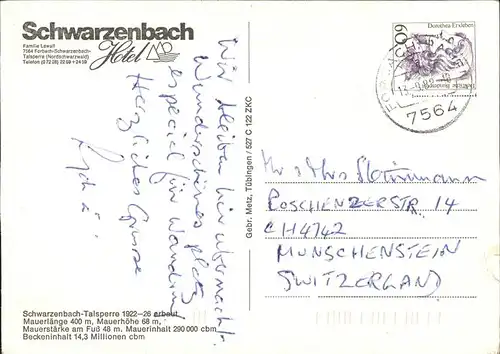 Schwarzenbach
Hotel
Familie Lewull
7564 Forbach-Schwarzenbach-
Talsperre (Nordschwarzwald)
Telefon (0 72 26)
Wir bleiben hier übernacht.
Wunderschönes platz
especiel für wandern
Herzliches Grüsse
Gebr. Metz, Tübingen / 527 C 122 ZKC
Dorothea Erxleben
60
7564
Mr & Mrs
POSCHENZERSTR 14
CH4142
MUNSCHENSTEIN
SWITZERLAND
Schwarzenbach-Talsperre 1922–26 erbaut
Mauerlänge 400 m, Mauerhöhe 68 m,
Mauerstärke am Fuß 48 m. Mauerinhalt 290 000 cbm
Beckeninhalt 14,3 Millionen cbm